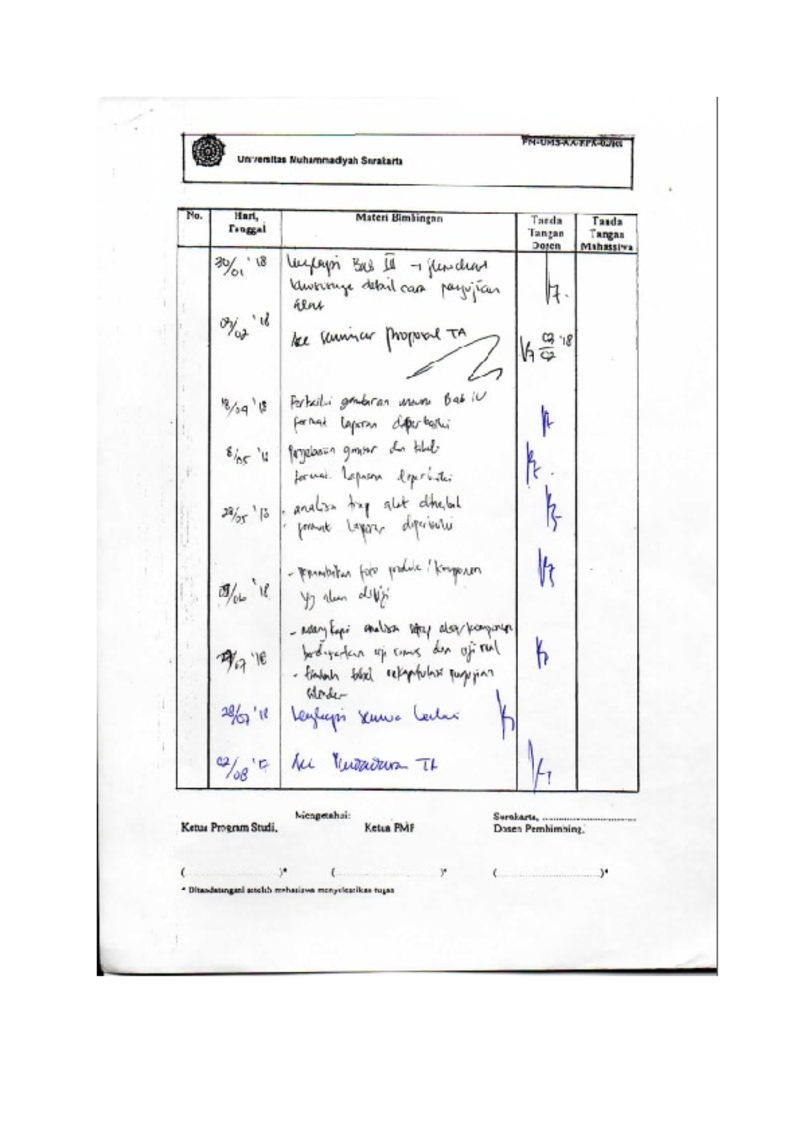 FM-UMS-AA-FPA-02/R0
Universitas Muhammadiyah Surakarta
No.
Hari,
Tanggal
Materi Bimbingan
Tanda
Tangan
Dosen
Tanda
Tangan
Mahasiswa
30/01 '18
lengkapi Bab III → flowchart
khususnya detail cara pengujian
03/02 '18
Acc seminar proposal TA
03/02 '18
18/04 '18
Perbaiki gambaran umum Bab IV
format laporan diperbaiki
8/05 '18
Penjelasan gambar dan tabel
format laporan diperbaiki
23/05 '18
- analisa tiap alat ditambah
- format laporan diperbaiki
- penambahan foto produk / komponen
/06 '18
yg akan diuji
- melengkapi analisa tiap alat/komponen
/07 '18
berdasarkan uji rumus dan uji real
- tambah tabel rekapitulasi pengujian
silinder
28/07 '18
Lengkapi semua
02/08 '18
Acc Pendadaran TA
Mengetahui:
Surakarta, ..............................
Ketua Program Studi,
Ketua PMF
Dosen Pembimbing,
(..............................)*
(..............................)*
(..............................)*
* Ditandatangani setelah mahasiswa menyelesaikan tugas